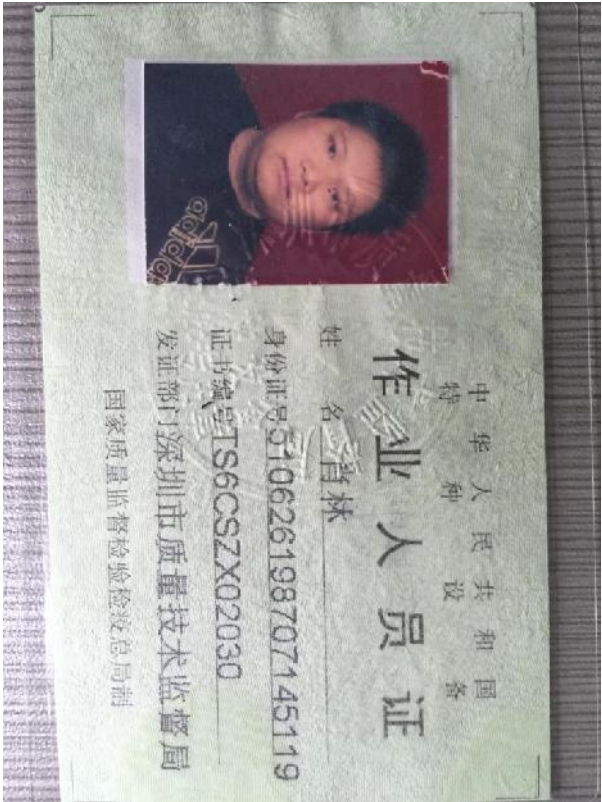 中华人民共和国
特种设备
作业人员证
姓 名 肖林
身份证号510626198707145119
证书编号TS6CSZX02030
发证部门深圳市质量技术监督局
国家质量监督检验检疫总局制
adidas